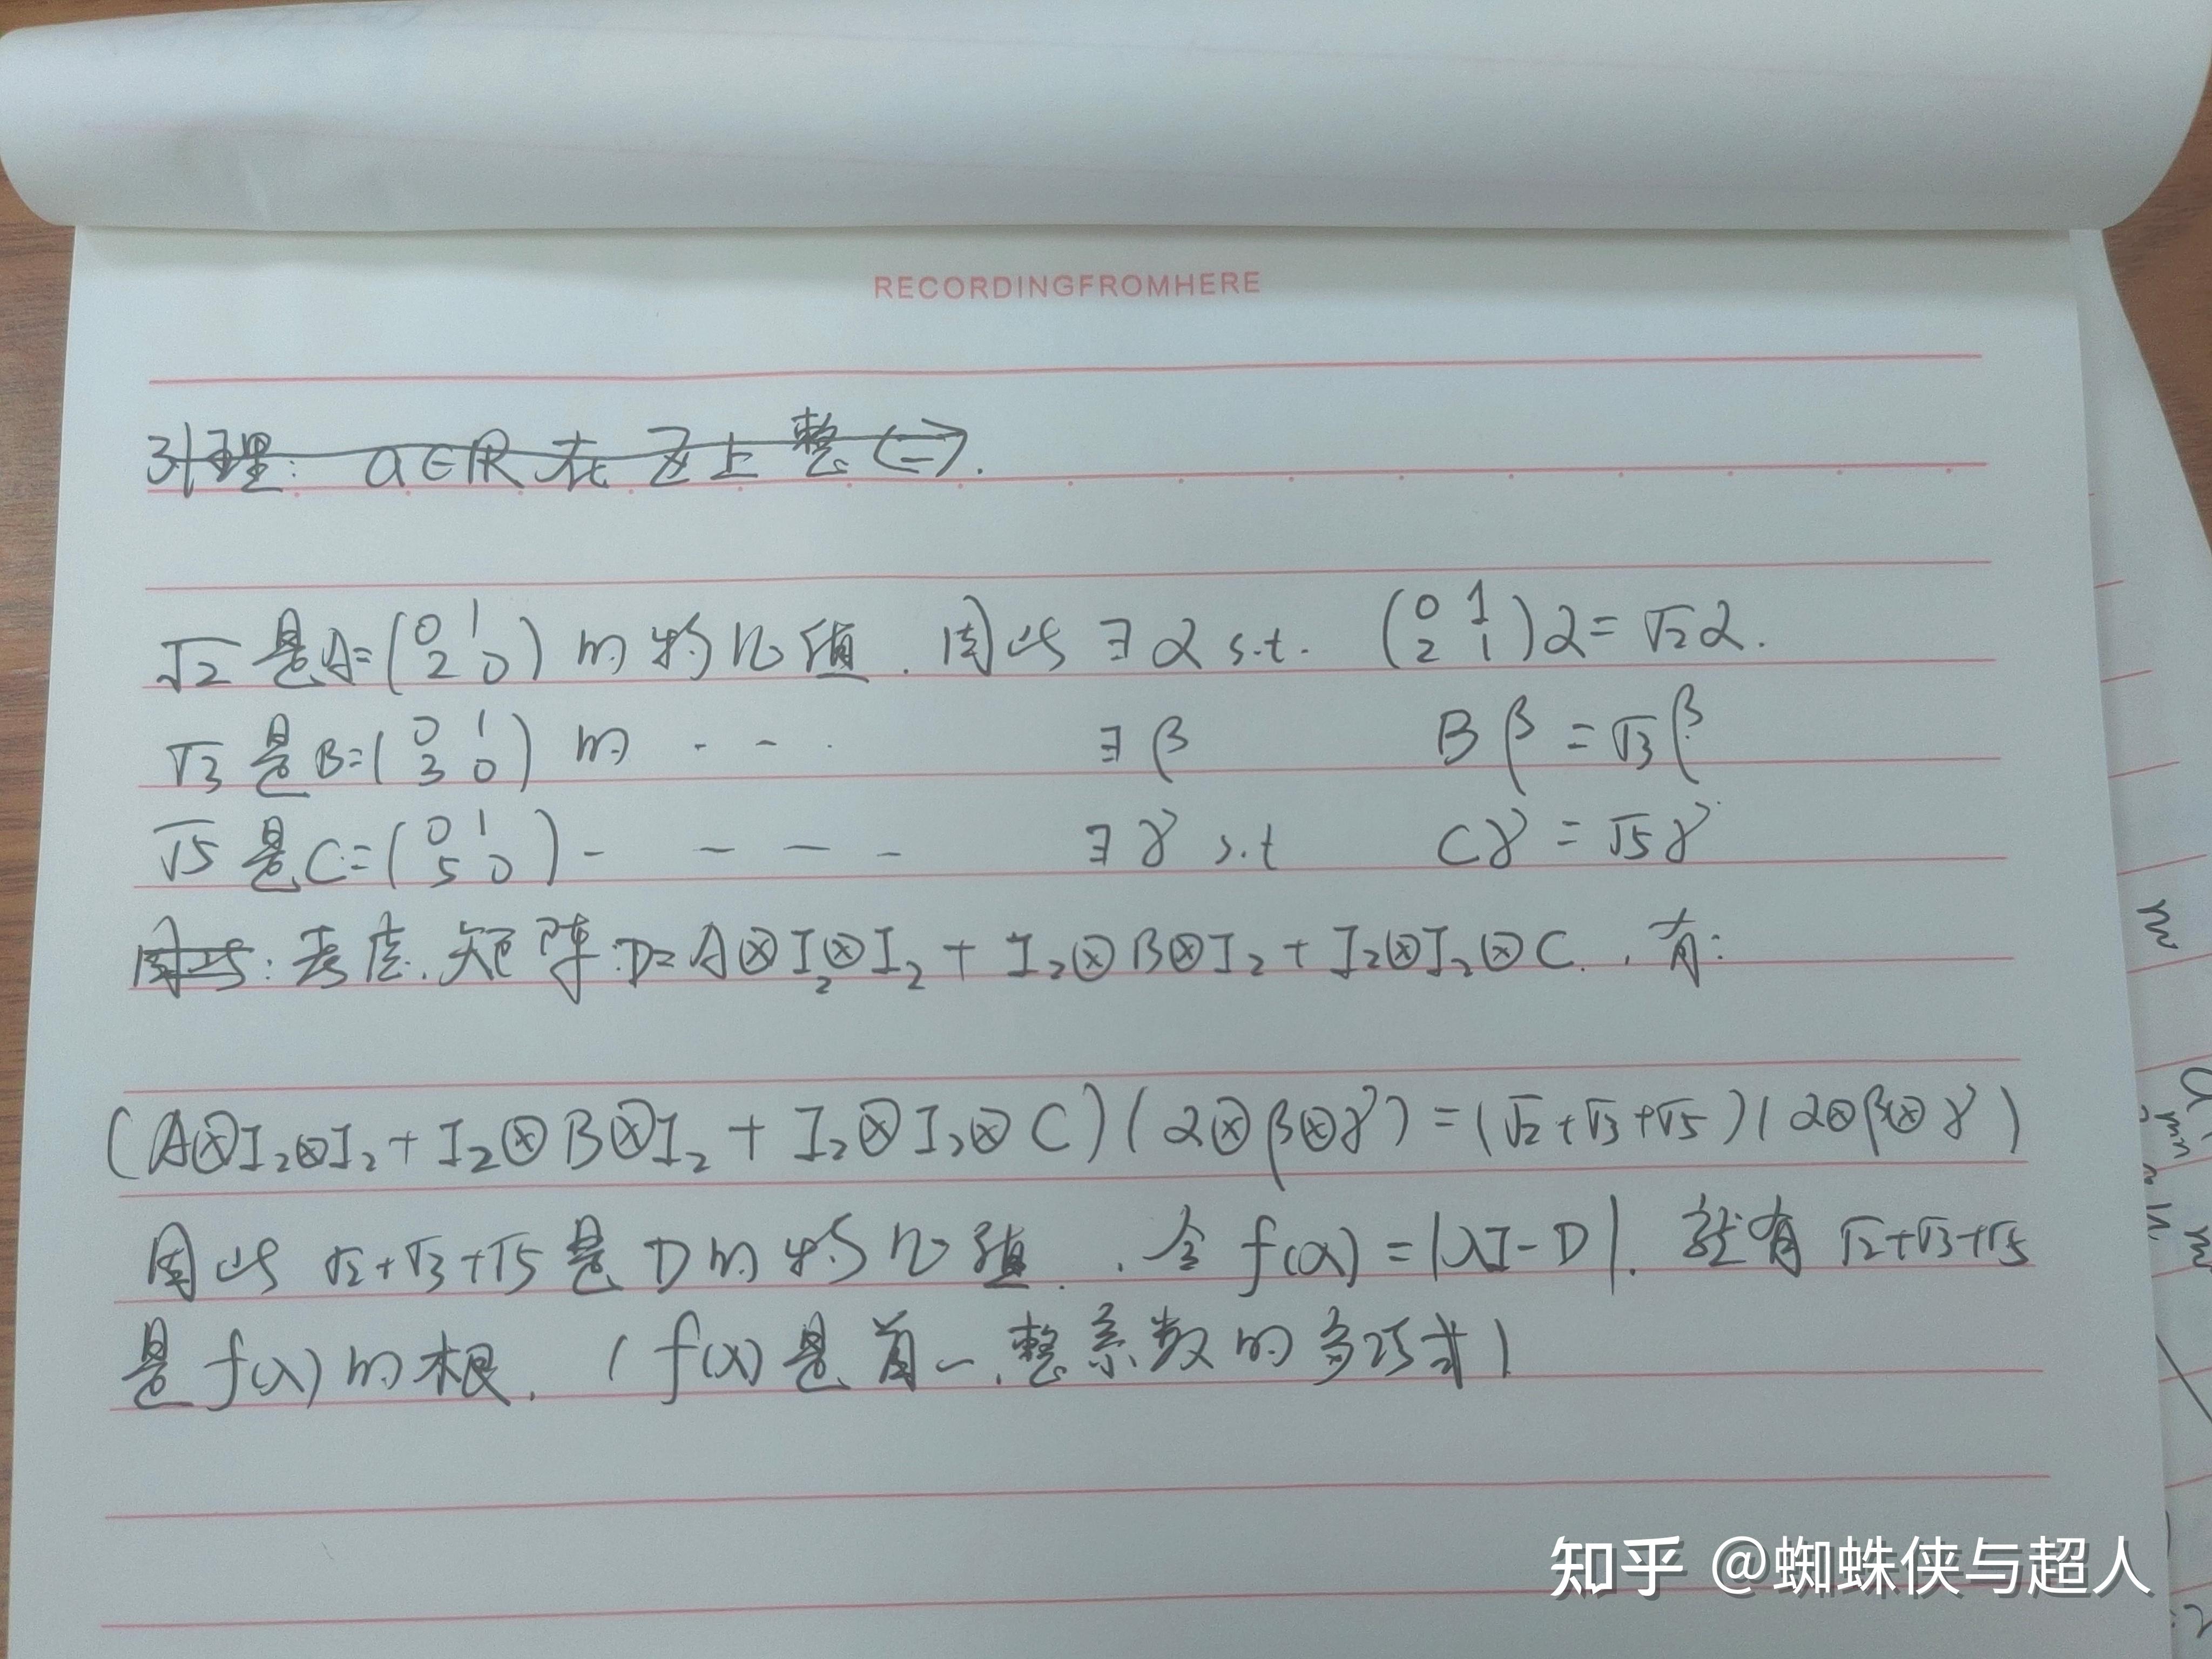 RECORDINGFROMHERE
引理: a∈R 在 Z 上 整 ⟺.
√2 是A=(0 1 2 0) 的 特征值. 因此 ∃ α s.t. (0 1 2 1)α=√2α.
√3 是B=(0 1 3 0) 的 - - · ∃ β Bβ=√3β
√5 是C=(0 1 5 0) - - - - ∃ γ s.t Cγ=√5γ
因此: 考虑.矩阵:D=A⊗I₂⊗I₂+I₂⊗B⊗I₂+I₂⊗I₂⊗C. , 有:
(A⊗I₂⊗I₂+I₂⊗B⊗I₂+I₂⊗I₂⊗C)(α⊗β⊗γ)=(√2+√3+√5)(α⊗β⊗γ)
因此 √2+√3+√5 是 D 的 特征值. . 令 f(λ)=|λI-D|. 就有 √2+√3+√5
是 f(λ) 的 根. (f(λ) 是 首一.整系数的多项式)
知乎 @蜘蛛侠与超人